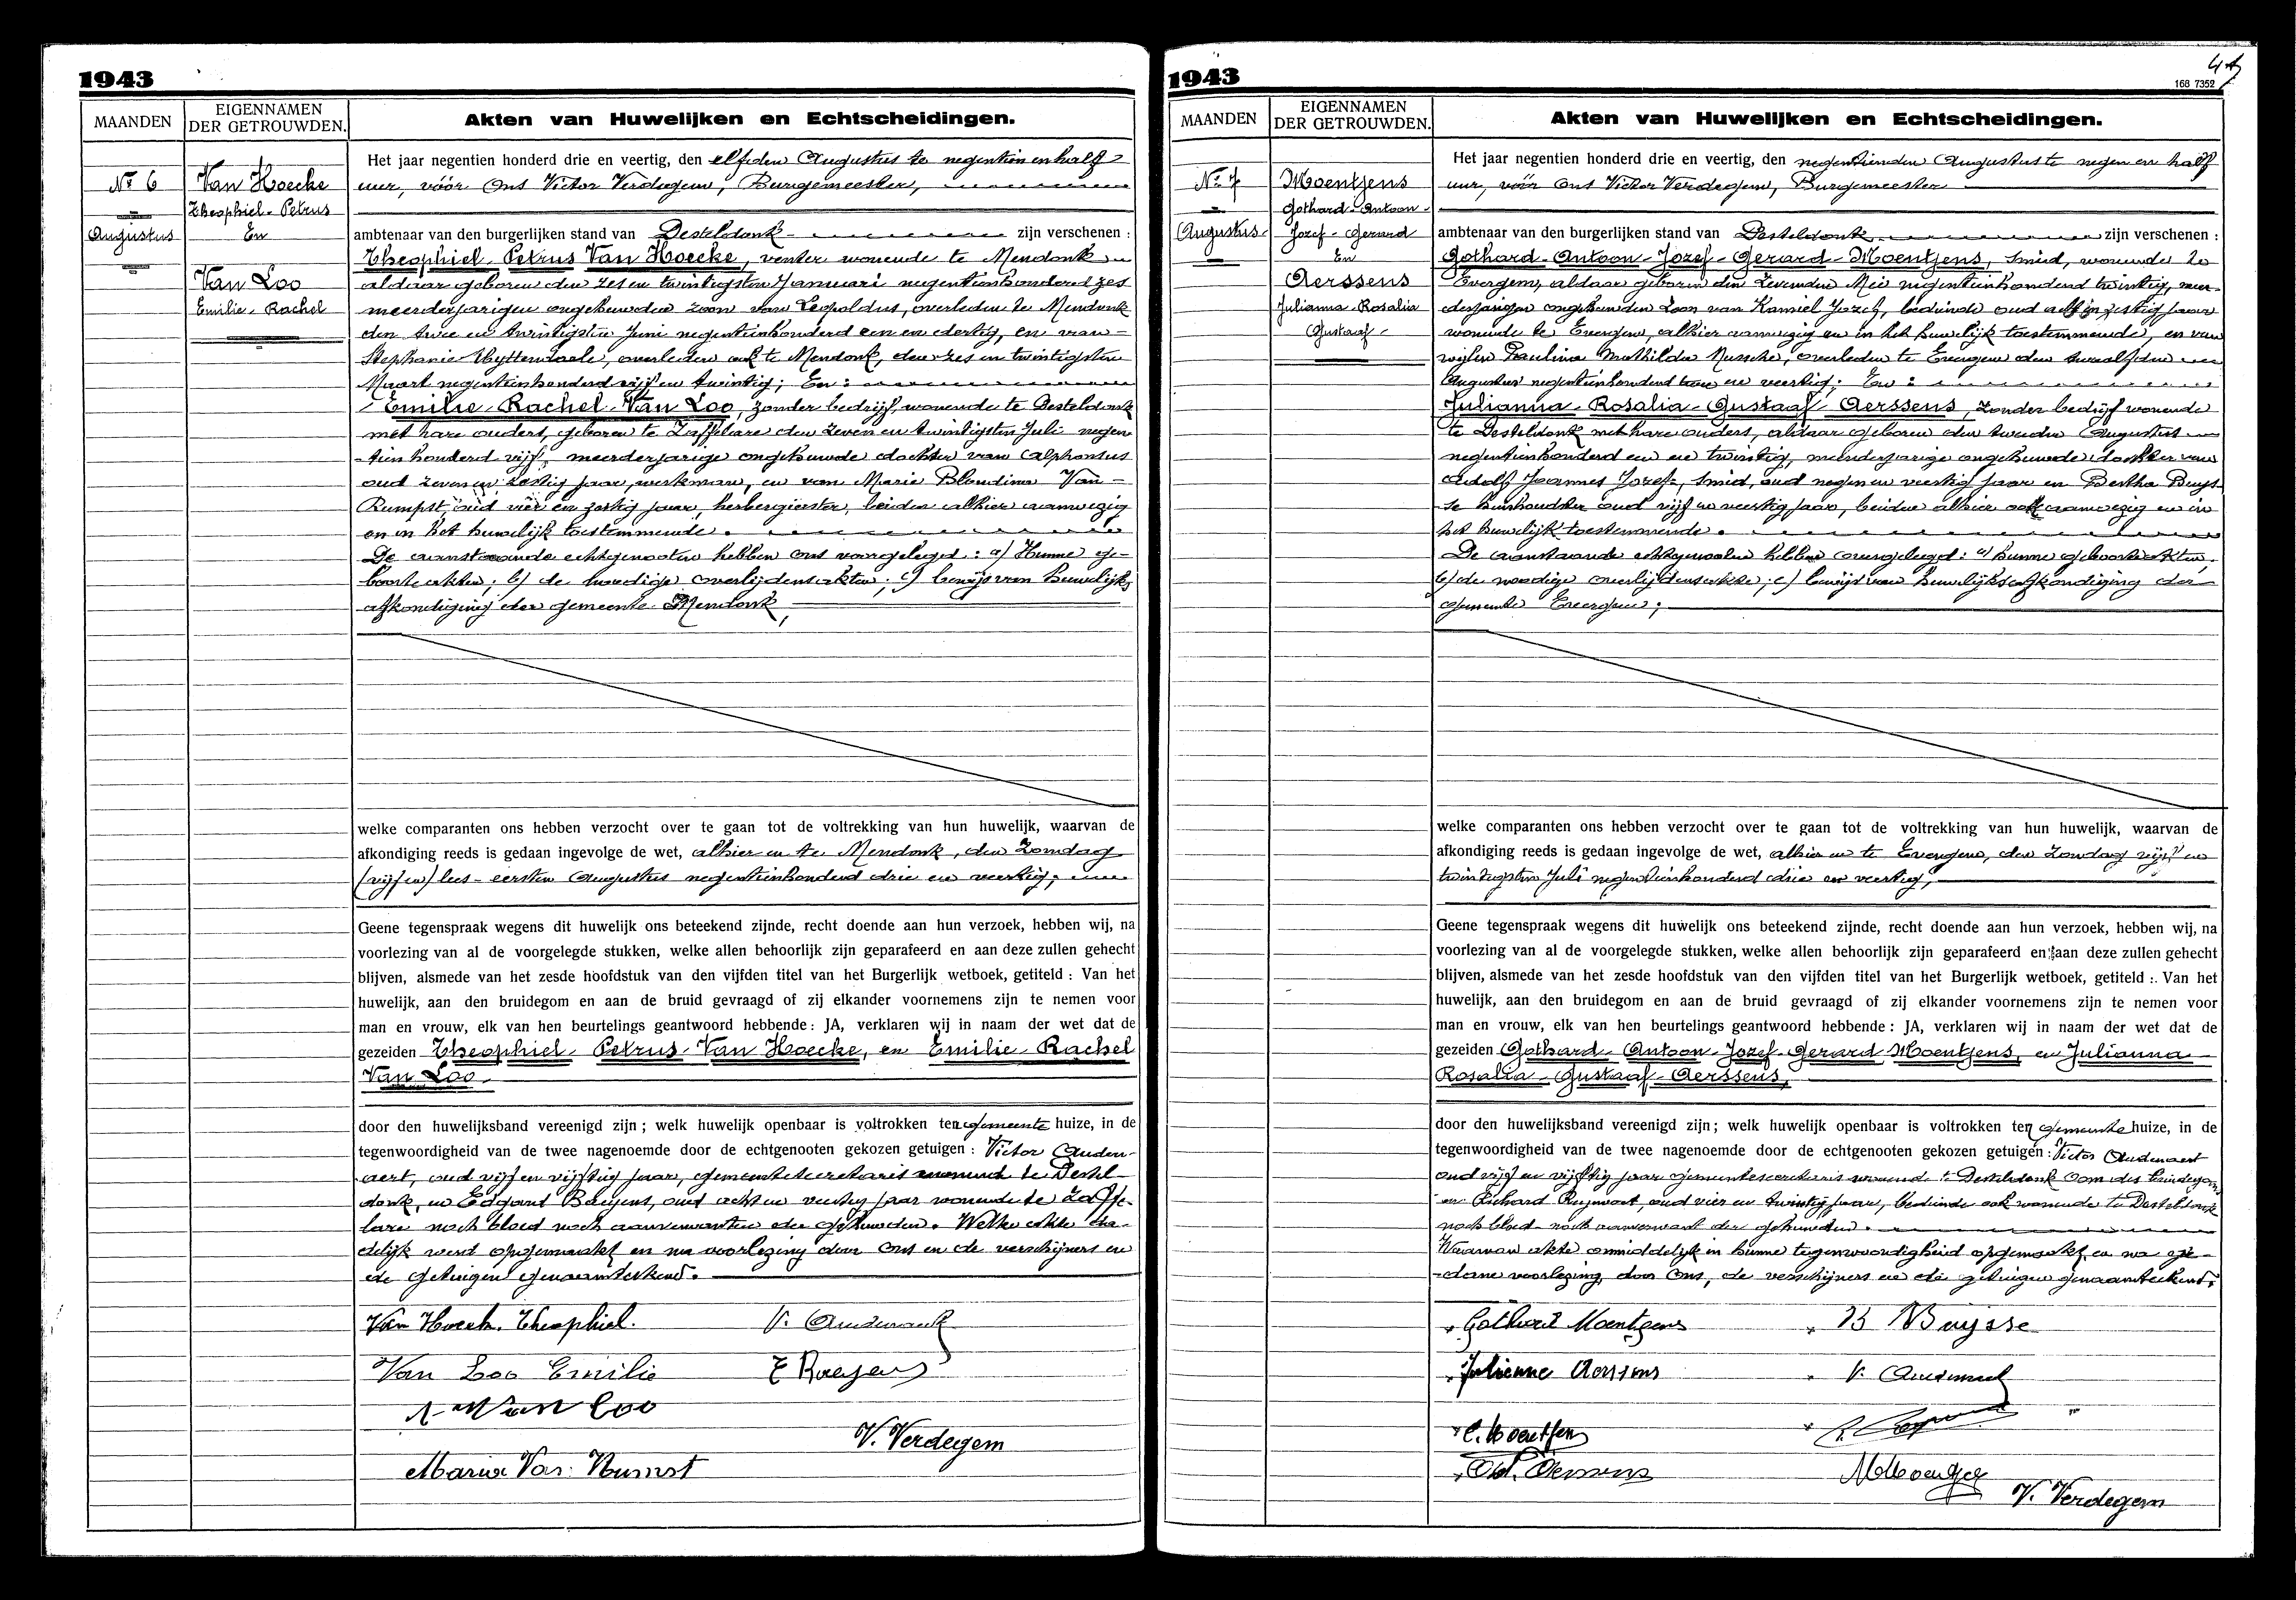 1943
MAANDEN
EIGENNAMEN
DER GETROUWDEN.
Akten van Huwelijken en Echtscheidingen.
No 6
Augustus
Van Hoecke
Theophiel-Petrus
En
Van Loo
Emilie-Rachel
Het jaar negentien honderd drie en veertig, den elfden Augustus te negentien en half
uur, vóór Ons Victor Verdegem, Burgemeester,
ambtenaar van den burgerlijken stand van Desteldonk zijn verschenen :
Theophiel-Petrus Van Hoecke, venter wonende te Mendonk
aldaar geboren den zes en twintigsten Januari negentienhonderd zes
meerderjarigen ongehuwden zoon van Leopoldus, overleden te Mendonk
den twee en twintigsten Juni negentienhonderd een en dertig, en van
Stephanie Uyttendaele, overleden ook te Mendonk, den zes en twintigsten
Maart negentienhonderd vijf en twintig; En :
Emilie-Rachel Van Loo, zonder bedrijf, wonende te Desteldonk
met hare ouders, geboren te Zaffelare den zeven en twintigsten Juli negen
tien honderd vijf, meerderjarige ongehuwde dochter van Alphonsus
oud zeven en zestig jaar, werkman, en van Marie Blondina Van
Rumpst, oud vier en zestig jaar, herbergierster, beiden alhier aanwezig
en in het huwelijk toestemmende.
De aanstaande echtgenooten hebben ons voorgelegd : a) Hunne ge-
boorteakten; b) de noodige overlijdensakten; c) bewijs van huwelijks
afkondiging der gemeente Mendonk,
welke comparanten ons hebben verzocht over te gaan tot de voltrekking van hun huwelijk, waarvan de
afkondiging reeds is gedaan ingevolge de wet, alhier en te Mendonk, den Zondag
(vijf en) lees - eersten Augustus negentienhonderd drie en veertig;
Geene tegenspraak wegens dit huwelijk ons beteekend zijnde, recht doende aan hun verzoek, hebben wij, na
voorlezing van al de voorgelegde stukken, welke allen behoorlijk zijn geparafeerd en aan deze zullen gehecht
blijven, alsmede van het zesde hoofdstuk van den vijfden titel van het Burgerlijk wetboek, getiteld : Van het
huwelijk, aan den bruidegom en aan de bruid gevraagd of zij elkander voornemens zijn te nemen voor
man en vrouw, elk van hen beurtelings geantwoord hebbende : JA, verklaren wij in naam der wet dat de
gezeiden Theophiel-Petrus Van Hoecke, en Emilie-Rachel
Van Loo
door den huwelijksband vereenigd zijn ; welk huwelijk openbaar is voltrokken ten gemeente huize, in de
tegenwoordigheid van de twee nagenoemde door de echtgenooten gekozen getuigen : Victor Auden-
aert, oud vijf en vijftig jaar, gemeentesecretaris wonende te Destel-
donk, en Edgard Baeyens, oud acht en veertig jaar wonende te Zaffe-
lare noch bloed noch aanverwanten der gehuwden. Welke akte da-
delijk werd opgemaakt en na voorlezing door Ons en de verschijners en
de getuigen genaamteekend.
Van Hoecke Theophiel. V. Audenaert
Van Loo Emilie E Baeyens
A. Van Loo
V. Verdegem
Maria Van Rumst
1943
168 7352
MAANDEN
EIGENNAMEN
DER GETROUWDEN.
Akten van Huwelijken en Echtscheidingen.
No 7
Augustus
Moentjens
Gothard-Antoon-
Jozef-Gerard
En
Aerssens
Julianna-Rosalia
Gustaaf-
Het jaar negentien honderd drie en veertig, den negentienden Augustus te negen en half
uur, vóór Ons Victor Verdegem, Burgemeester
ambtenaar van den burgerlijken stand van Desteldonk zijn verschenen :
Gothard-Antoon-Jozef-Gerard-Moentjens, smid, wonende te
Evergem, aldaar geboren den zevenden Mei negentienhonderd twintig, meer-
derjarigen ongehuwden zoon van Kamiel Jozef, bediende oud zestig jaar
wonende te Evergem, alhier aanwezig en in het huwelijk toestemmende, en van
wijlen Paulina Mathilda Mussche, overleden te Evergem den twaalfden
Augustus negentienhonderd twee en veertig; En :
Julianna-Rosalia-Gustaaf-Aerssens, zonder bedrijf wonende
te Desteldonk met hare ouders, aldaar geboren den tweeden Augustus
negentienhonderd een en twintig, meerderjarige ongehuwde dochter van
Adolf Joannes Jozef, smid, oud negen en veertig jaar en Bertha Buys-
se huishoudster oud vijf en veertig jaar, beiden alhier ook aanwezig en in
het huwelijk toestemmende.
De aanstaande echtgenooten hebben overgelegd : a) hunne geboorteakten,
b) de noodige overlijdensakte; c) bewijs van huwelijksafkondiging der
gemeente Evergem;
welke comparanten ons hebben verzocht over te gaan tot de voltrekking van hun huwelijk, waarvan de
afkondiging reeds is gedaan ingevolge de wet, alhier en te Evergem, den Zondag vijf en
twintigsten Juli negentienhonderd drie en veertig,
Geene tegenspraak wegens dit huwelijk ons beteekend zijnde, recht doende aan hun verzoek, hebben wij, na
voorlezing van al de voorgelegde stukken, welke allen behoorlijk zijn geparafeerd en aan deze zullen gehecht
blijven, alsmede van het zesde hoofdstuk van den vijfden titel van het Burgerlijk wetboek, getiteld : Van het
huwelijk, aan den bruidegom en aan de bruid gevraagd of zij elkander voornemens zijn te nemen voor
man en vrouw, elk van hen beurtelings geantwoord hebbende : JA, verklaren wij in naam der wet dat de
gezeiden Gothard-Antoon-Jozef-Gerard Moentjens, en Julianna
Rosalia-Gustaaf-Aerssens,
door den huwelijksband vereenigd zijn ; welk huwelijk openbaar is voltrokken ten gemeente huize, in de
tegenwoordigheid van de twee nagenoemde door de echtgenooten gekozen getuigen : Victor Audenaert
oud vijf en vijftig jaar gemeentesecretaris wonende te Desteldonk oom des bruidegoms
en Richard oud vier en twintig jaar, bediende ook wonende te Desteldonk
noch bloed noch aanverwant der gehuwden.
Waarvan akte onmiddelijk in hunne tegenwoordigheid opgemaakt en na ge-
dane voorlezing door Ons, de verschijners en de getuigen genaamteekend.
Gothard Moentjens B Buijsse
Julienne Aerssens V. Audenaert
C. Moentjens
Ad. Aerssens
V. Verdegem